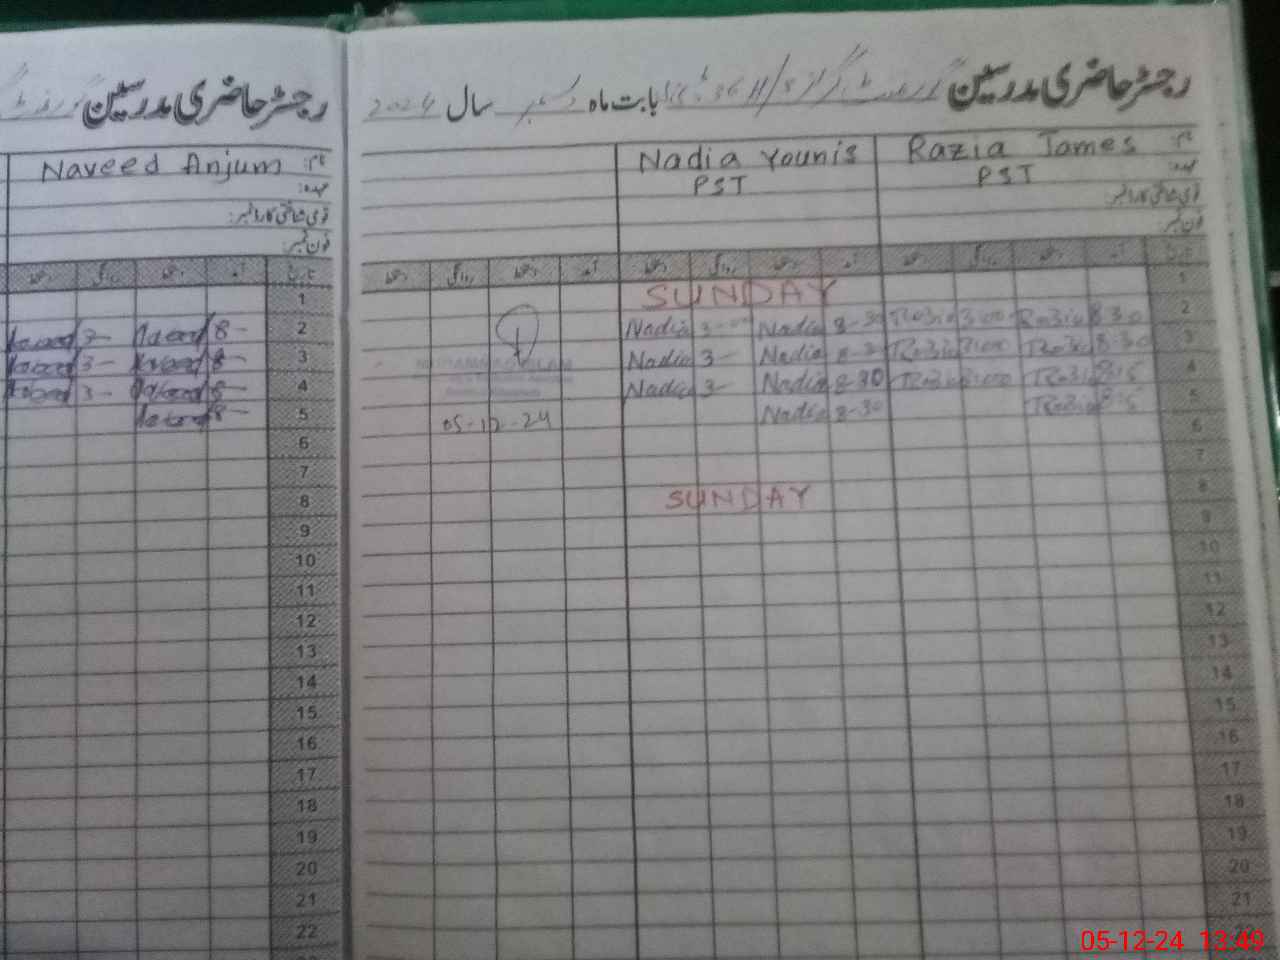 رجسٹر حاضری مدرسین گورنمنٹ گرلز بابت ماہ دسمبر سال 2024
نام: Razia James
Nadia Younis
عہدہ: PST
PST
قومی شناختی کارڈ نمبر:
فون نمبر:
تاریخ آمد دستخط روانگی دستخط آمد دستخط روانگی دستخط آمد دستخط روانگی دستخط
1 SUNDAY
2 8-30 Razia 3:00 Razia 8-30 Nadia 3-00 Nadia
3 8-30 Razia 3:00 Razia Nadia 3- Nadia
4 8:15 Razia 3:00 Razia 8-30 Nadia 3- Nadia
5 8:15 Razia 8-30 Nadia
05-12-24
6
7
8 SUNDAY
9
10
11
12
13
14
15
16
17
18
19
20
21
رجسٹر حاضری مدرسین گورنمنٹ
نام: Naveed Anjum
عہدہ:
قومی شناختی کارڈ نمبر:
فون نمبر:
تاریخ آمد دستخط روانگی دستخط
1
2 8- 3-
3 8- 3-
4 8- 3-
5 8-
6
7
8
9
10
11
12
13
14
15
16
17
18
19
20
21
22
05-12-24 13:49